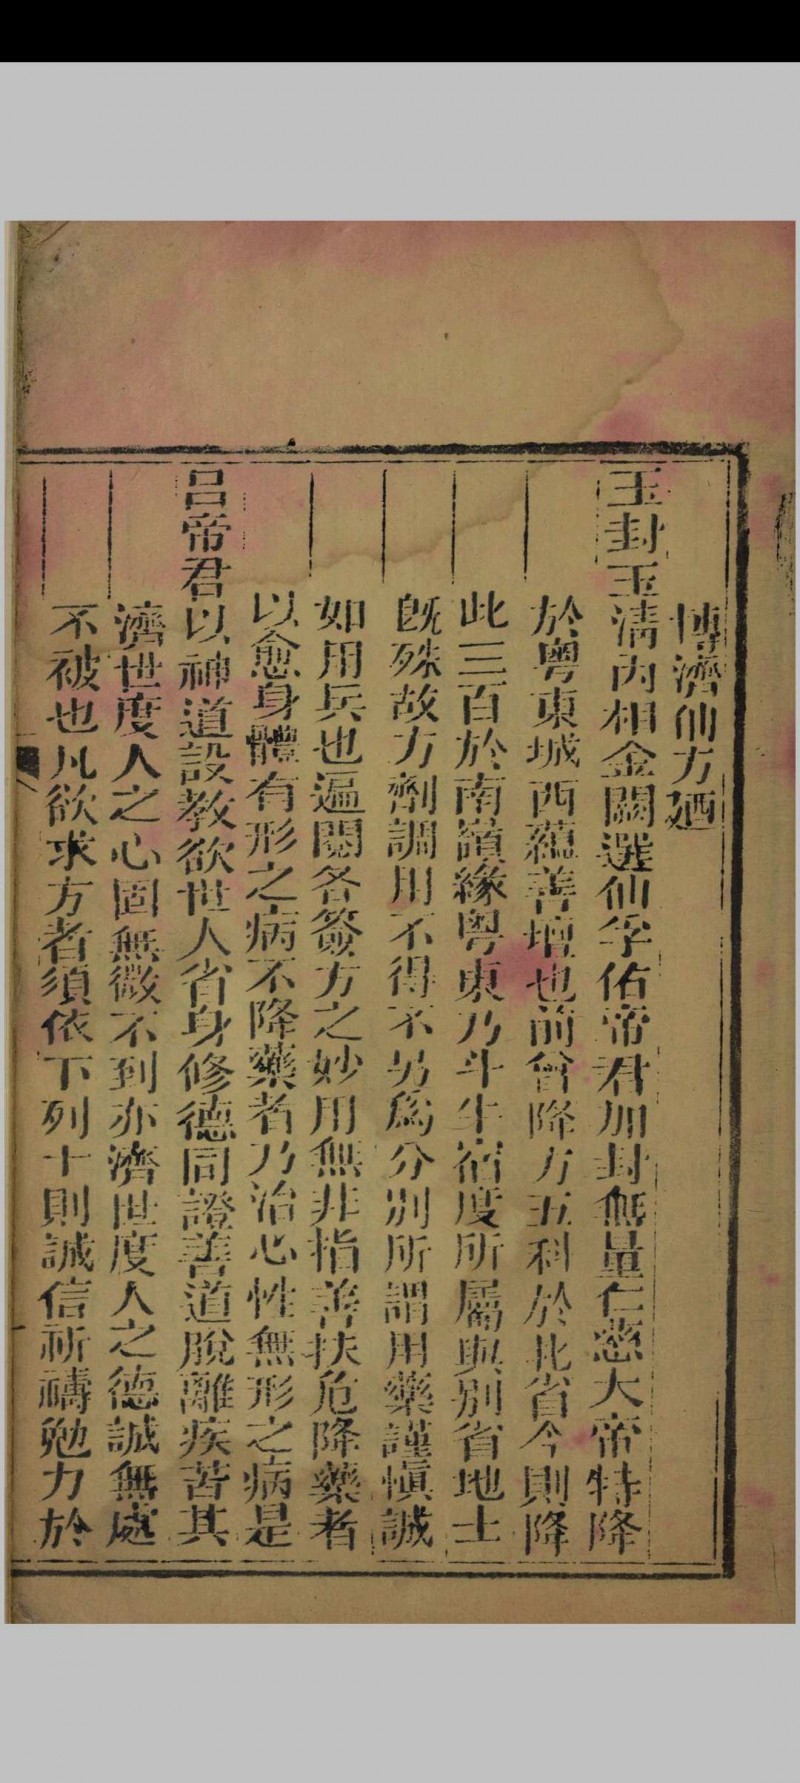 博濟仙方廼
玉封玉清內相金闕選仙孚佑帝君加封無量仁慈大帝特降
於粵東城西蘊善壇也前曾降方五科於北省今則降
此三百於南嶺緣粵東乃斗牛宿度所屬與別省地土
旣殊故方劑調用不得不另爲分別所謂用藥謹慎誠
如用兵也遍閱各簽方之妙用無非指善扶危降藥者
以愈身體有形之病不降藥者乃治心性無形之病是
呂帝君以神道設教欲世人省身修德同證善道脫離疾苦其
濟世度人之心固無微不到亦濟世度人之德誠無處
不被也凡欲求方者須依下列十則誠信祈禱勉力於